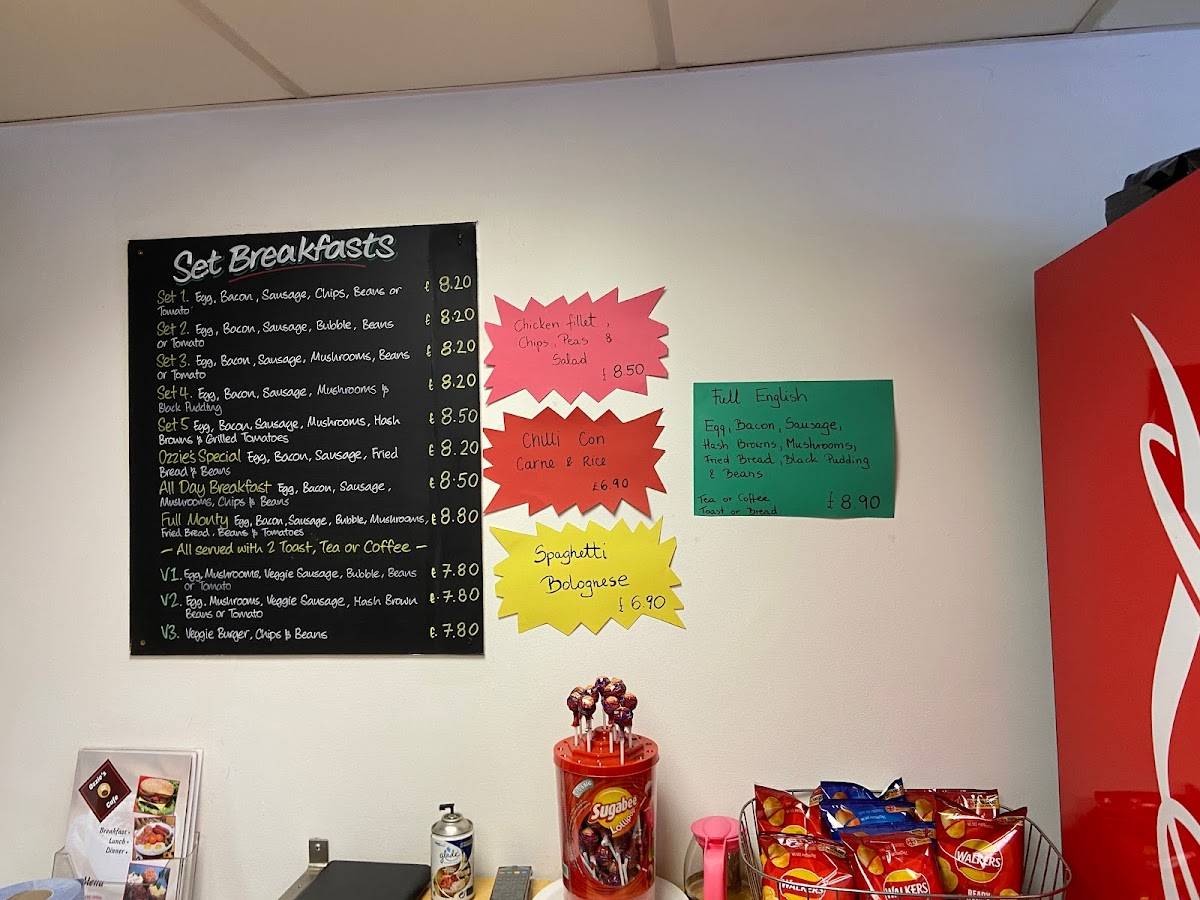 Set Breakfasts
Set 1. Egg, Bacon, Sausage, Chips, Beans or £ 8.20
Tomato
Set 2. Egg, Bacon, Sausage, Bubble, Beans £ 8.20
or Tomato
Set 3. Egg, Bacon, Sausage, Mushrooms, Beans £ 8.20
or Tomato
Set 4. Egg, Bacon, Sausage, Mushrooms & £ 8.20
Black Pudding
Set 5 Egg, Bacon, Sausage, Mushrooms, Hash £ 8.50
Browns & Grilled Tomatoes
Ozzie's Special Egg, Bacon, Sausage, Fried £ 8.20
Bread & Beans
All Day Breakfast Egg, Bacon, Sausage, £ 8.50
Mushrooms, Chips & Beans
Full Monty Egg, Bacon, Sausage, Bubble, Mushrooms, £ 8.80
Fried Bread, Beans & Tomatoes
— All served with 2 Toast, Tea or Coffee —
V1. Egg, Mushrooms, Veggie Sausage, Bubble, Beans £ 7.80
or Tomato
V2. Egg, Mushrooms, Veggie Sausage, Hash Brown £ 7.80
Beans or Tomato
V3. Veggie Burger, Chips & Beans £ 7.80
Chicken fillet,
Chips, Peas &
Salad
£ 8.50
Chilli Con
Carne & Rice
£6.90
Spaghetti
Bolognese
£ 6.90
Full English
Egg, Bacon, Sausage,
Hash Browns, Mushrooms,
Fried Bread, Black Pudding
& Beans
Tea or Coffee £ 8.90
Toast or Bread
Ozzie's
Cafe
Breakfast
Lunch
Dinner
Menu
glade
Sugabee
Lollipops
WALKERS
WALKERS
WALKERS
READY